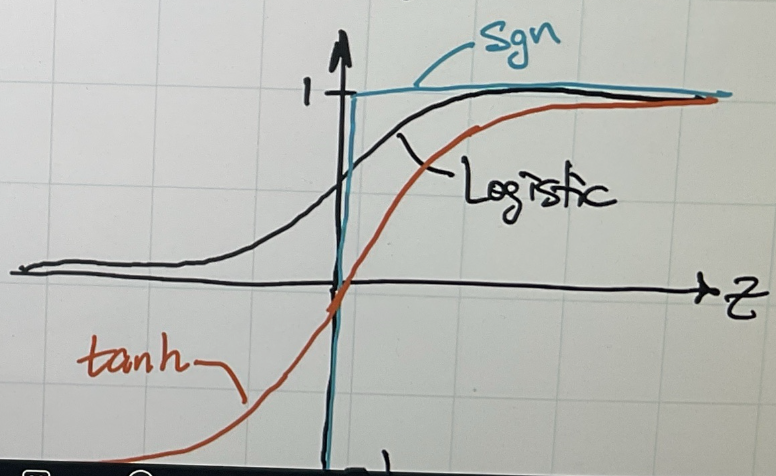 Sgn
1
Logistic
z
tanh
-1